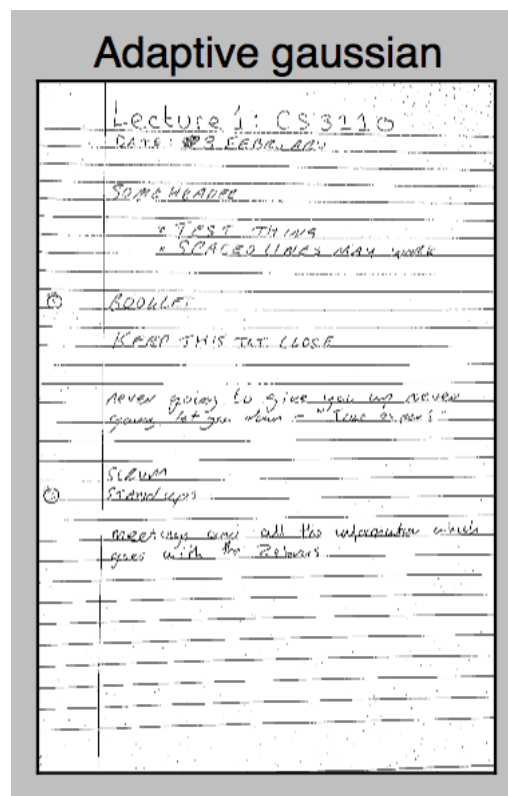 Adaptive gaussian
Lecture 1: CS3110
DATE: 03 FEBRUARY
SOME HEADER
• TEST THING
• SPACED LINES MAY WORK
KEEP THIS TXT CLOSE
never going to give you up never
going let you down - "
SCRUM
STANDups
meetings and all the information which
goes with the